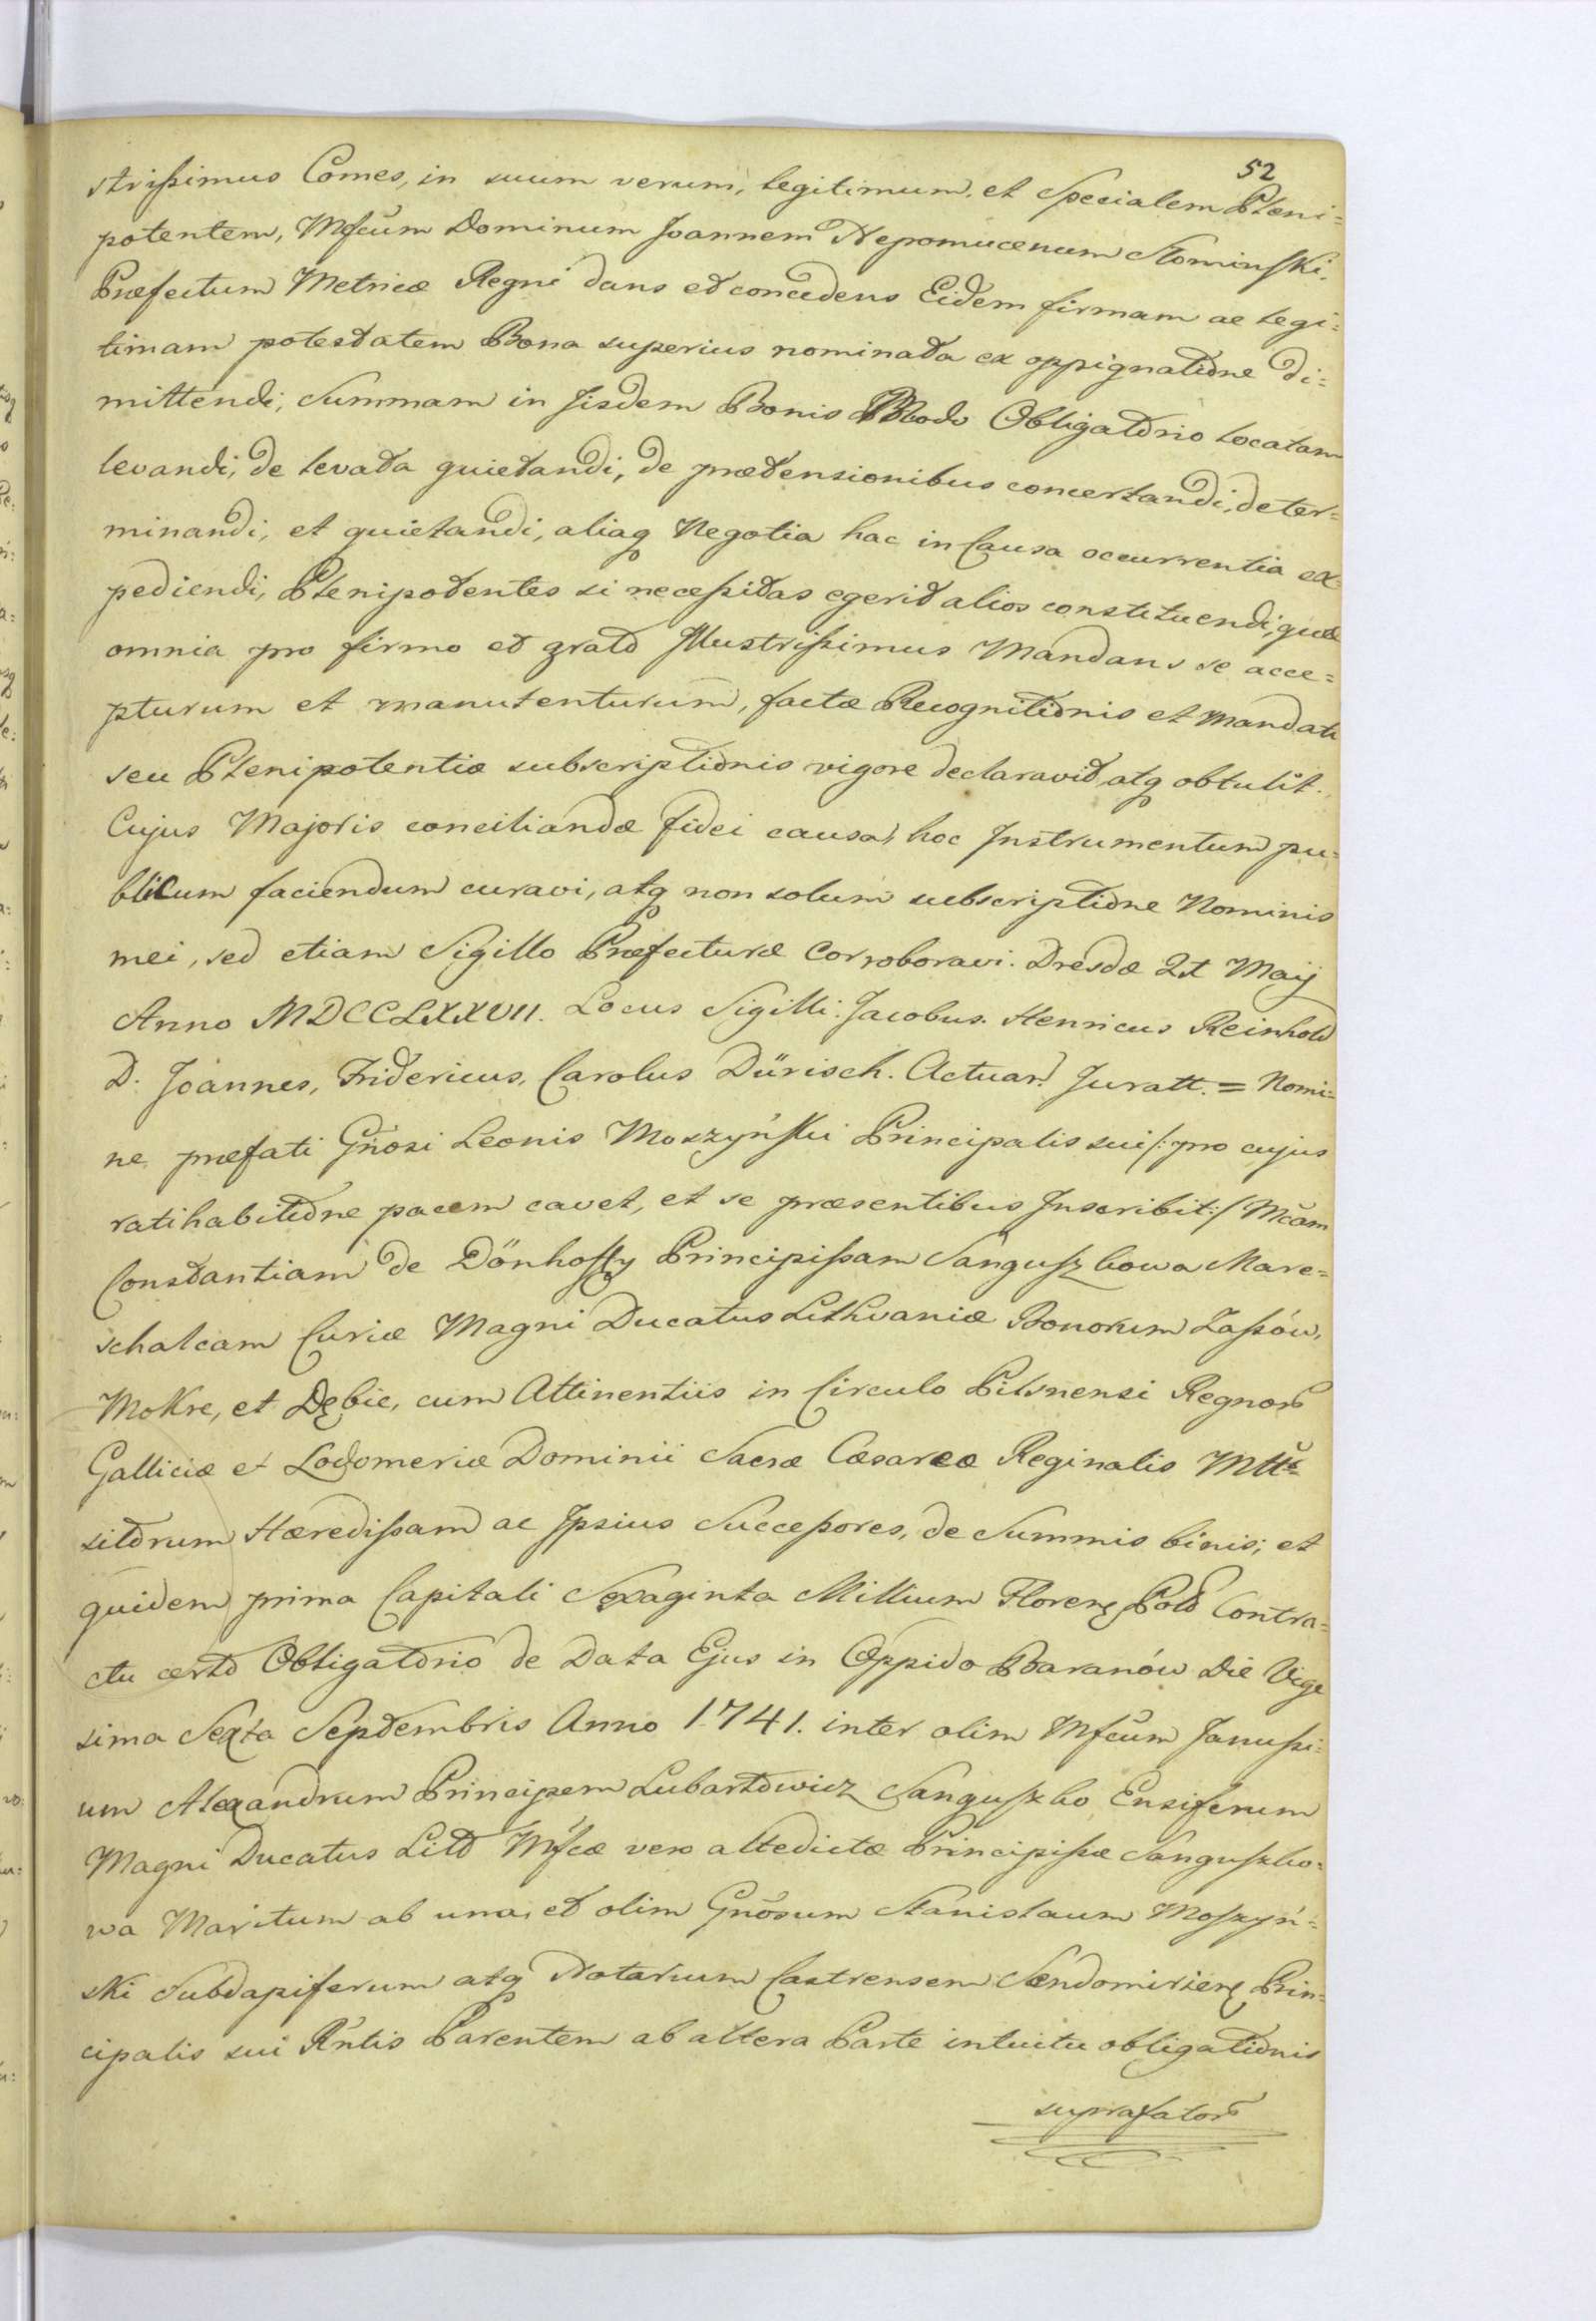 52
strissimus Comes, in suum verum, legitimum, et Specialem Pleni=
potentem, Mfcum Dominum Joannem Nepomucenum Słominski
Præfectum Metricæ Regni dans et concedens Eidem firmam ac legi=
timam potestatem Bona superius nominata ex oppignatione di=
mittendi, Summam in Jisdem Bonis Modo Obligatorio locatam
levandi, de levata quietandi, de prætensionibus concertandi, deter=
minandi, et quietandi, aliaq Negotia hac in Causa occurrentia ex=
pediendi, Plenipotentes si necessitas egerit alios constituendi, quæ
omnia pro firmo et grato Illustrissimus Mandans se acce=
pturum et manutenturum, factæ Recognitionis et Mandati
seu Plenipotentiæ subscriptionis vigore declaravit atq obtulit.
Cujus Majoris conciliandæ fidei causa, hoc Instrumentum pu=
blicum faciendum curavi, atq non solum subscriptione Nominis
mei, sed etiam Sigillo Præfecturæ Corroboravi. Dresdæ 21 Maij
Anno MDCCLXXVII. Locus Sigilli. Jacobus Henricus Reinhold
D. Joannes, Fridericus, Carolus Dürisch. Actuar. Juratt. = Nomi=
ne præfati Gnosi Leonis Moszyński Principalis sui /: pro cujus
ratihabitione pacem cavet, et se præsentibus Inscribit :/ Mcam
Constantiam de Dönhoffy Principissam Sanguszkowa Mare=
schalcam Curiæ Magni Ducatus Lithvaniæ Bonorum Zassów,
Mokre, et Dębie, cum Attinentiis in Circulo Pilsnensi Regnor
Galliciæ et Lodomeriæ Dominii Sacræ Cæsareæ Reginalis Mttis
sitorum Hæredissam ac Ipsius Successores, de Summis binis; et
quidem prima Capitali Sexaginta Millium Floren Pol Contra=
ctu certo Obligatorio de Data Ejus in Oppido Baranów Die Vige
sima Sexta Septembris Anno 1741. inter olim Mfcum Janussi=
um Alexandrum Principem Lubartowicz Sanguszko Ensiferum
Magni Ducatus Litt Mfcæ vero altedictæ Principissæ Sanguszko=
wa Maritum ab una, et olim Gnosum Stanislaum Moszyń=
ski Subdapiferum atq Notarium Castrensem Sendomirien Prin=
cipalis sui Rntis Parentem ab altera Parte intuitu obligationis
suprafator